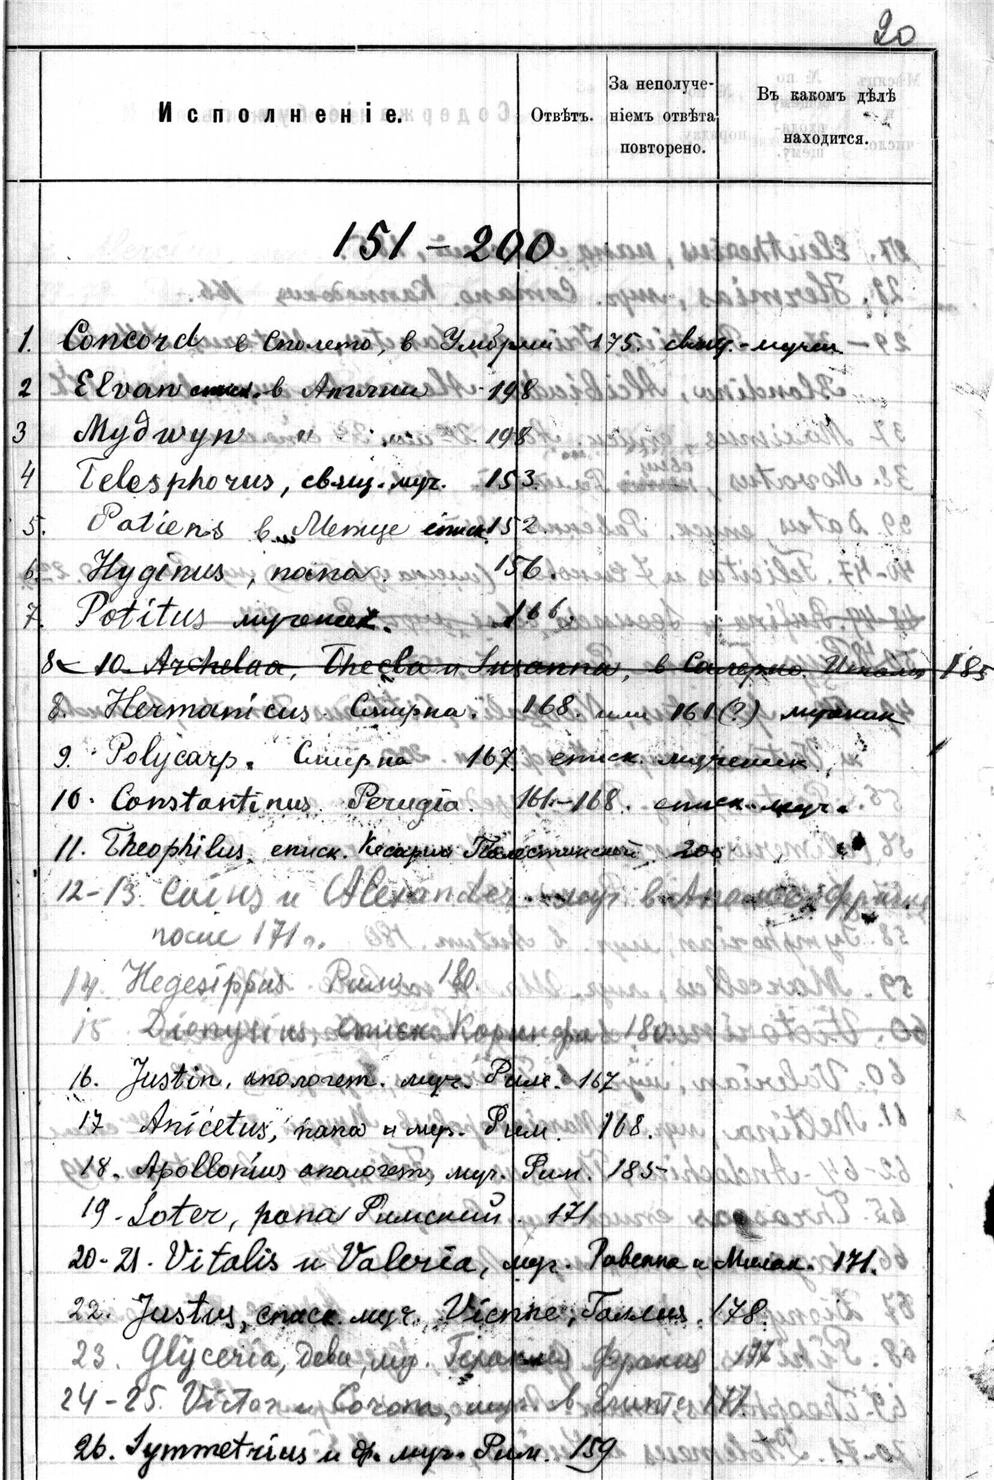 20
Исполненіе.
Отвѣтъ.
За неполуче-
ніемъ отвѣта
повторено.
Въ какомъ дѣлѣ
находится.
151 – 200
1. Concord в Сполето, в Умбрии 175. свящ.-мучен.
2 Elvan в Англии 198
3 Mydwyn " " 198
4 Telesphorus, свящ.-муч. 153.
5. Patiens в Метце еписк. 152.
6. Hyginus, папа. 156.
7. Potitus мученик. 166.
8 – 10. Archelaa, Thecla и Susanna, в Салерно. Италия 185
8. Hermanicus Смирна. 168. или 161 (?) мученик
9. Polycarp. Смирна 167. еписк. мученик
10. Constantinus. Perugia. 161–168. еписк. муч.
11. Theophilus, еписк. Кесарии Палестинской 200
12-13. Caius и Alexander муч. в Апамее Фригия
после 171 г.
14. Hegesippus Рим. 180.
15 Dionysius, еписк. Коринфа 180
16. Justin, апологет. муч. Рим. 167
17 Anicetus, папа и муч. Рим. 168.
18. Apollonius апологет, муч. Рим. 185
19 - Soter, papa Римский. 171
20-21. Vitalis и Valeria, муч. Равенна и Милан. 171.
22. Justus, еписк. муч. Vienne, Галлия. 178.
23. Glyceria, дева, муч. Фракия 177
24-25. Victor и Corona, муч. в Египте 177
26. Symmetrius и др. муч. Рим. 159